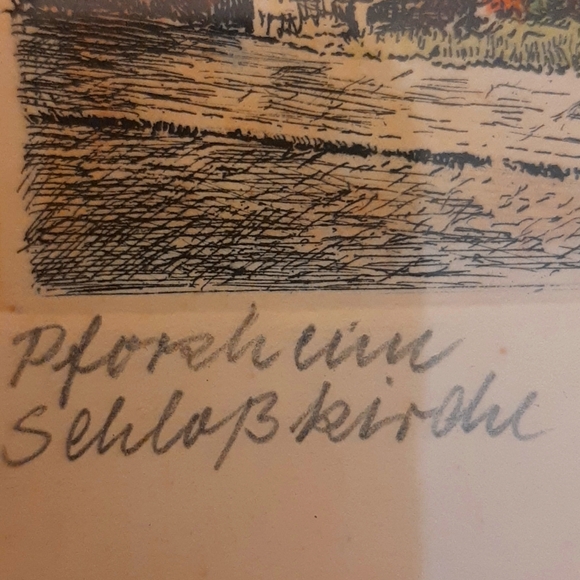 Pforzheim
Schloßkirche